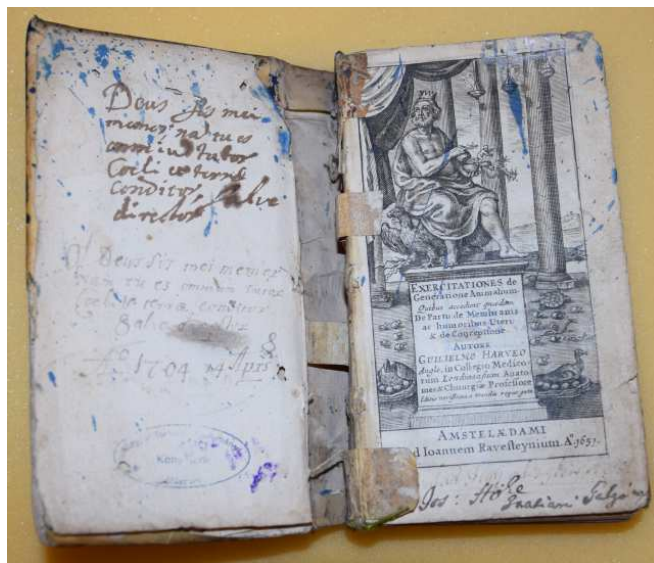 Deus sis mei
memor, na tu es
omnium tutor
Coeli ac terrae
conditor, Salve
director
Deus sis mei memor
nam tu es omnium tutor
coeli ac terrae conditor
Salve
Ao 1704 14
EXERCITATIONES de
Generatione Animalium.
Quibus accedunt quaedam
De Partu: de Membranis
ac humoribus Uteri:
& de Conceptione
AUTORE
GUILIELMO HARVEO
Anglo, in Collegio Medico-
rum Londinensium Anato-
mes & Chirurgiæ Professore
AMSTELÆDAMI
Ioannem Ravesteynium. Ao. 1651.
Jos: